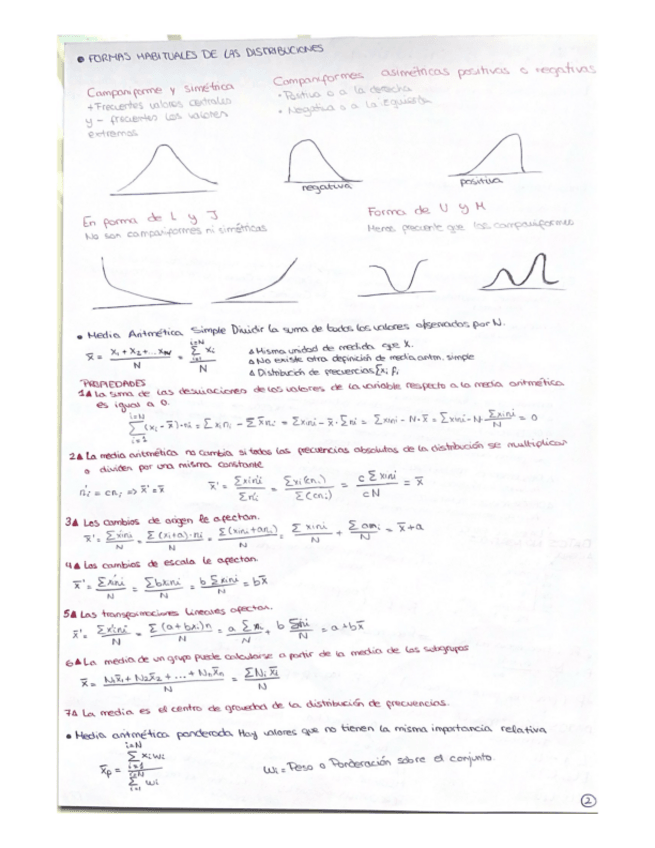 • FORMAS HABITUALES DE LAS DISTRIBUCIONES
Campaniforme y simétrica
+ Frecuentes valores centrales
y - frecuentes los valores
extremos
Campaniformes asimétricas positivas o negativas
• Positiva o a la derecha
• Negativa o a la izquierda
negativa
positiva
En forma de L y J
No son campaniformes ni simétricas
Forma de U y M
Menos frecuente que las campaniformes
• Media Aritmética Simple Dividir la suma de todos los valores observados por N.
x̄ = x₁ + x₂ + ... xN / N = Σ(i=1, i=N) xᵢ / N
Δ Misma unidad de medida que X.
Δ No existe otra definición de media aritm. simple
Δ Distribución de frecuencias Σxᵢ fᵢ
PROPIEDADES
1Δ La suma de las desviaciones de los valores de la variable respecto a la media aritmética
es igual a 0.
Σ(i=1, i=N) (xᵢ - x̄)·nᵢ = Σxᵢnᵢ - Σx̄nᵢ = Σxᵢnᵢ - x̄·Σnᵢ = Σxᵢnᵢ - N·x̄ = Σxᵢnᵢ - N·Σxᵢnᵢ/N = 0
2Δ La media aritmética no cambia si todas las frecuencias absolutas de la distribución se multiplican
o dividen por una misma constante
n'ᵢ = cnᵢ => x̄' = x̄
x̄' = Σxᵢn'ᵢ / Σn'ᵢ = Σxᵢ(cnᵢ) / Σ(cnᵢ) = cΣxᵢnᵢ / cN = x̄
3Δ Los cambios de origen le afectan.
x̄' = Σx'ᵢnᵢ / N = Σ(xᵢ+a)·nᵢ / N = Σ(xᵢnᵢ+anᵢ) / N = Σxᵢnᵢ / N + Σanᵢ / N = x̄ + a
4Δ Los cambios de escala le afectan
x̄' = Σx'ᵢnᵢ / N = Σbxᵢnᵢ / N = bΣxᵢnᵢ / N = bx̄
5Δ Las transformaciones lineales afectan.
x̄' = Σx'ᵢnᵢ / N = Σ(a+bxᵢ)n / N = a Σnᵢ / N + b Σxᵢnᵢ / N = a + bx̄
6Δ La media de un grupo puede calcularse a partir de la media de los subgrupos
x̄ = N₁x̄₁ + N₂x̄₂ + ... + Nₙx̄ₙ / N = ΣNᵢx̄ᵢ / N
7Δ La media es el centro de gravedad de la distribución de frecuencias.
• Media aritmética ponderada Hay valores que no tienen la misma importancia relativa
x̄p = Σ(i=1, i=N) xᵢwᵢ / Σ(i=1, i=N) wᵢ
Wᵢ = Peso o Ponderación sobre el conjunto
2